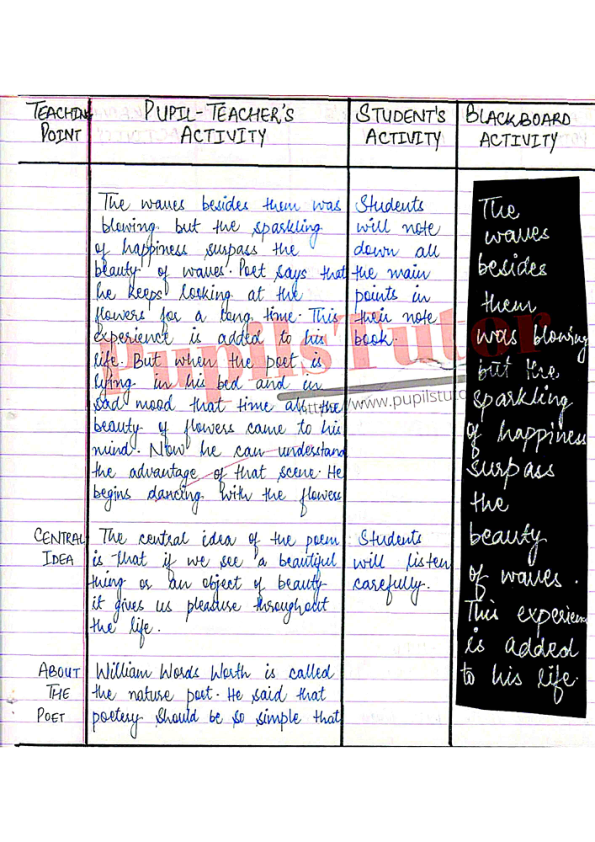 TEACHING POINT
PUPIL-TEACHER'S ACTIVITY
STUDENT'S ACTIVITY
BLACKBOARD ACTIVITY
The waves besides them was
blowing but the sparkling
of happiness surpass the
beauty of waves. Poet says that
he keeps looking at the
flowers for a long time. This
experience is added to his
life. But when the poet is
lying in his bed and in
sad mood that time all the
beauty of flowers came to his
mind. Now he can understand
the advantage of that scene. He
begins dancing with the flowers
Students
will note
down all
the main
points in
their note
book.
The
waves
besides
them
was blowing
but the
sparkling
of happiness
surpass
the
beauty
of waves.
This experien
is added
to his life.
PupilsTutor
https://www.pupilstu
CENTRAL
IDEA
The central idea of the poem
is that if we see a beautiful
thing or an object of beauty
it gives us pleasure throughout
the life.
Students
will listen
carefully.
ABOUT
THE
POET
William Words Worth is called
the nature poet. He said that
poetery should be so simple that